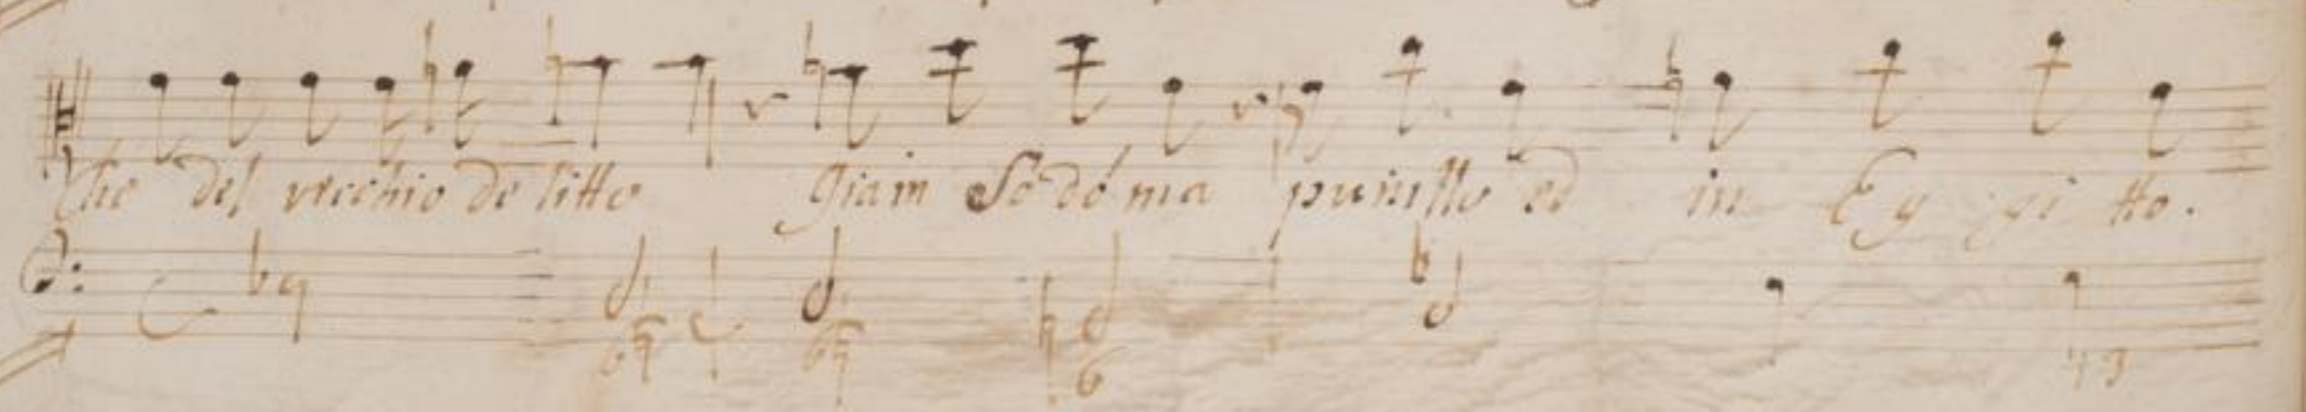 Che del vecchio de litto giam So do ma punillo ed in Eg gi tto.
6 6 6 4 3